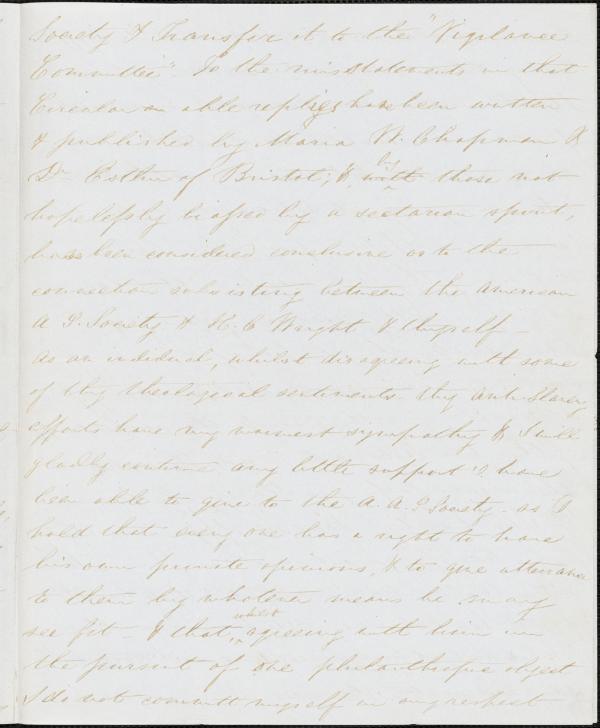 Society & Transfer it to the "Vigilance
Committee". To the misstatements in that
Circular an able replies have been written
& published by Maria W. Chapman &
Dr Estlin of Bristol; &, by with those not
hopelessly biassed by a sectarian spirit,
have been considered conclusive as to the
connection subsisting between the American
A S. Society & H. C Wright & thyself –
As an individual, whilst disagreeing with some
of thy theological sentiments thy Anti-Slavery
efforts have my warmest sympathy & I will
gladly continue any little support I have
been able to give to the A. A. S Society – as I
hold that every one has a right to have
his own private opinions, & to give utterance
to them by whatever means he may
see fit – & that, whilst agreeing with him in
the pursuit of one philanthropic object
I do not committ myself in any respect